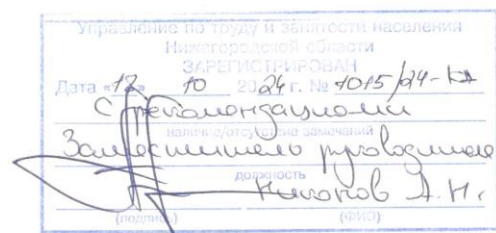 Управление по труду и занятости населения
Нижегородской области
ЗАРЕГИСТРИРОВАН
Дата «17» 10 2024 г. № 1015/24-КД
С рекомендациями
наличие/отсутствие замечаний
Заместитель руководителя
должность
Никонов А.Н.
(подпись) (ФИО)